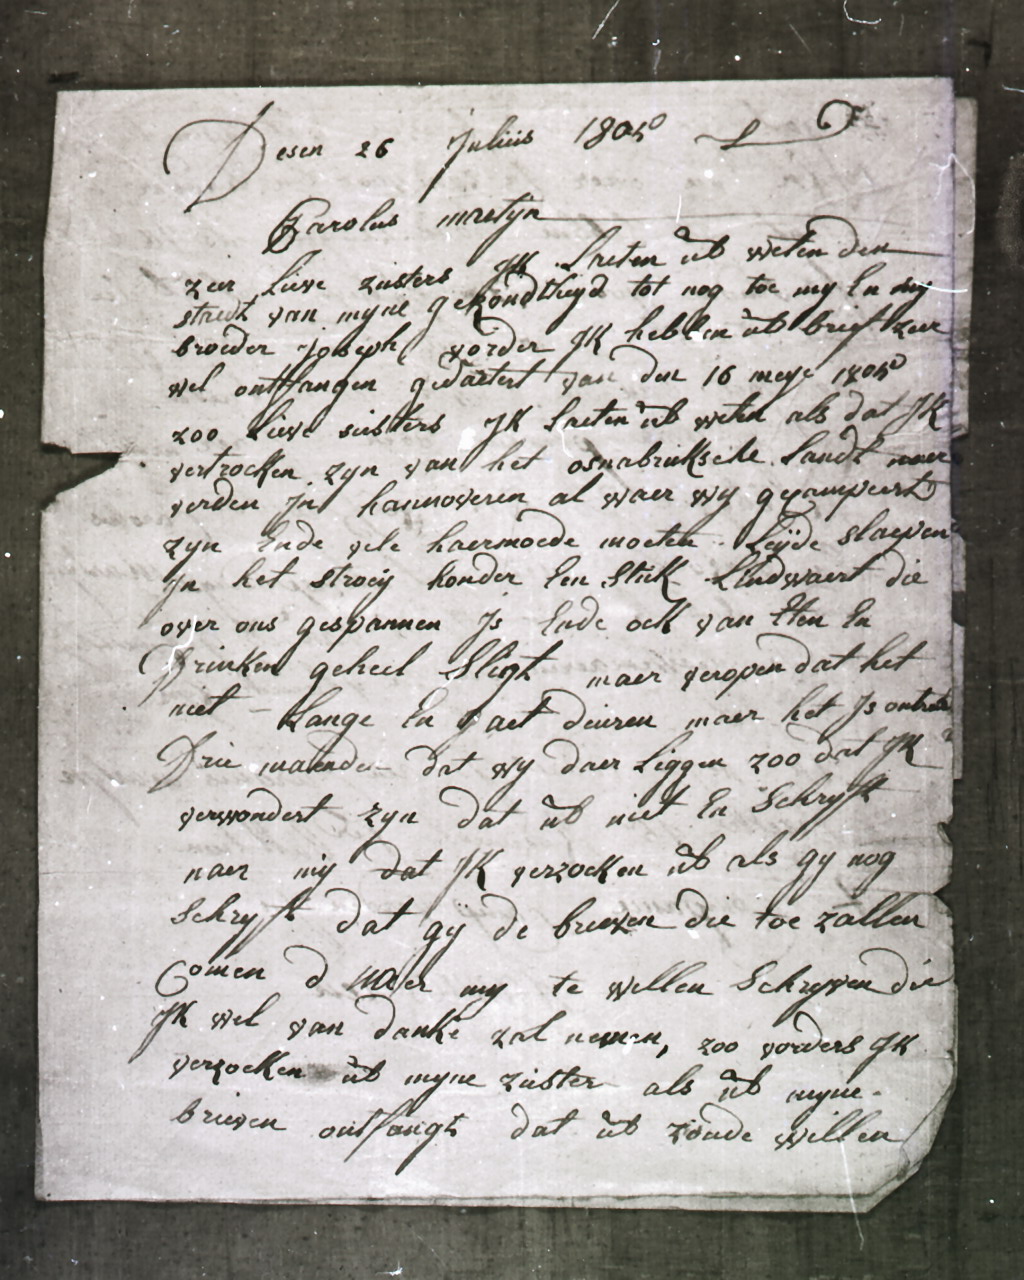 Desen 26 Julius 1805
Carolus mestyn
zeer Lieve zusters JK Laeten ub weten den
streck van myne gezondtheyd tot nog toe my En my
broeder joseph, vorder JK hebben ub brief zeer
wel ontfangen gedaetert van den 16 meye 1805
zoo Lieve susters JK Laeten ub weten als dat JK
vertrocken zyn van het osnabruksche Landt naer
verden Jn hannoveren al waer wy gecampeert
zyn Ende vele haermoede moeten Leyde slaepen
Jn het stroey honder Een Stuk Lindwaert die
over ons gespannen Js Ende ock van Eten En
Drinken geheel Sligt maer veropen dat het
niet Lange En gaet deuren maer het Js ontrent
Drie maenden dat wy daer Liggen zoo dat JK
verwondert zyn dat ub niet En Schryft
naer my dat JK verzocken ub als gy nog
Schryft dat gy de brieven die toe zallen
Comen d naer my te willen Schryven die
JK wel van danke zal nemen, zoo vorders JK
verzocken ub myne zuster als ub myne
brieven ontfangt dat ub zoude willen